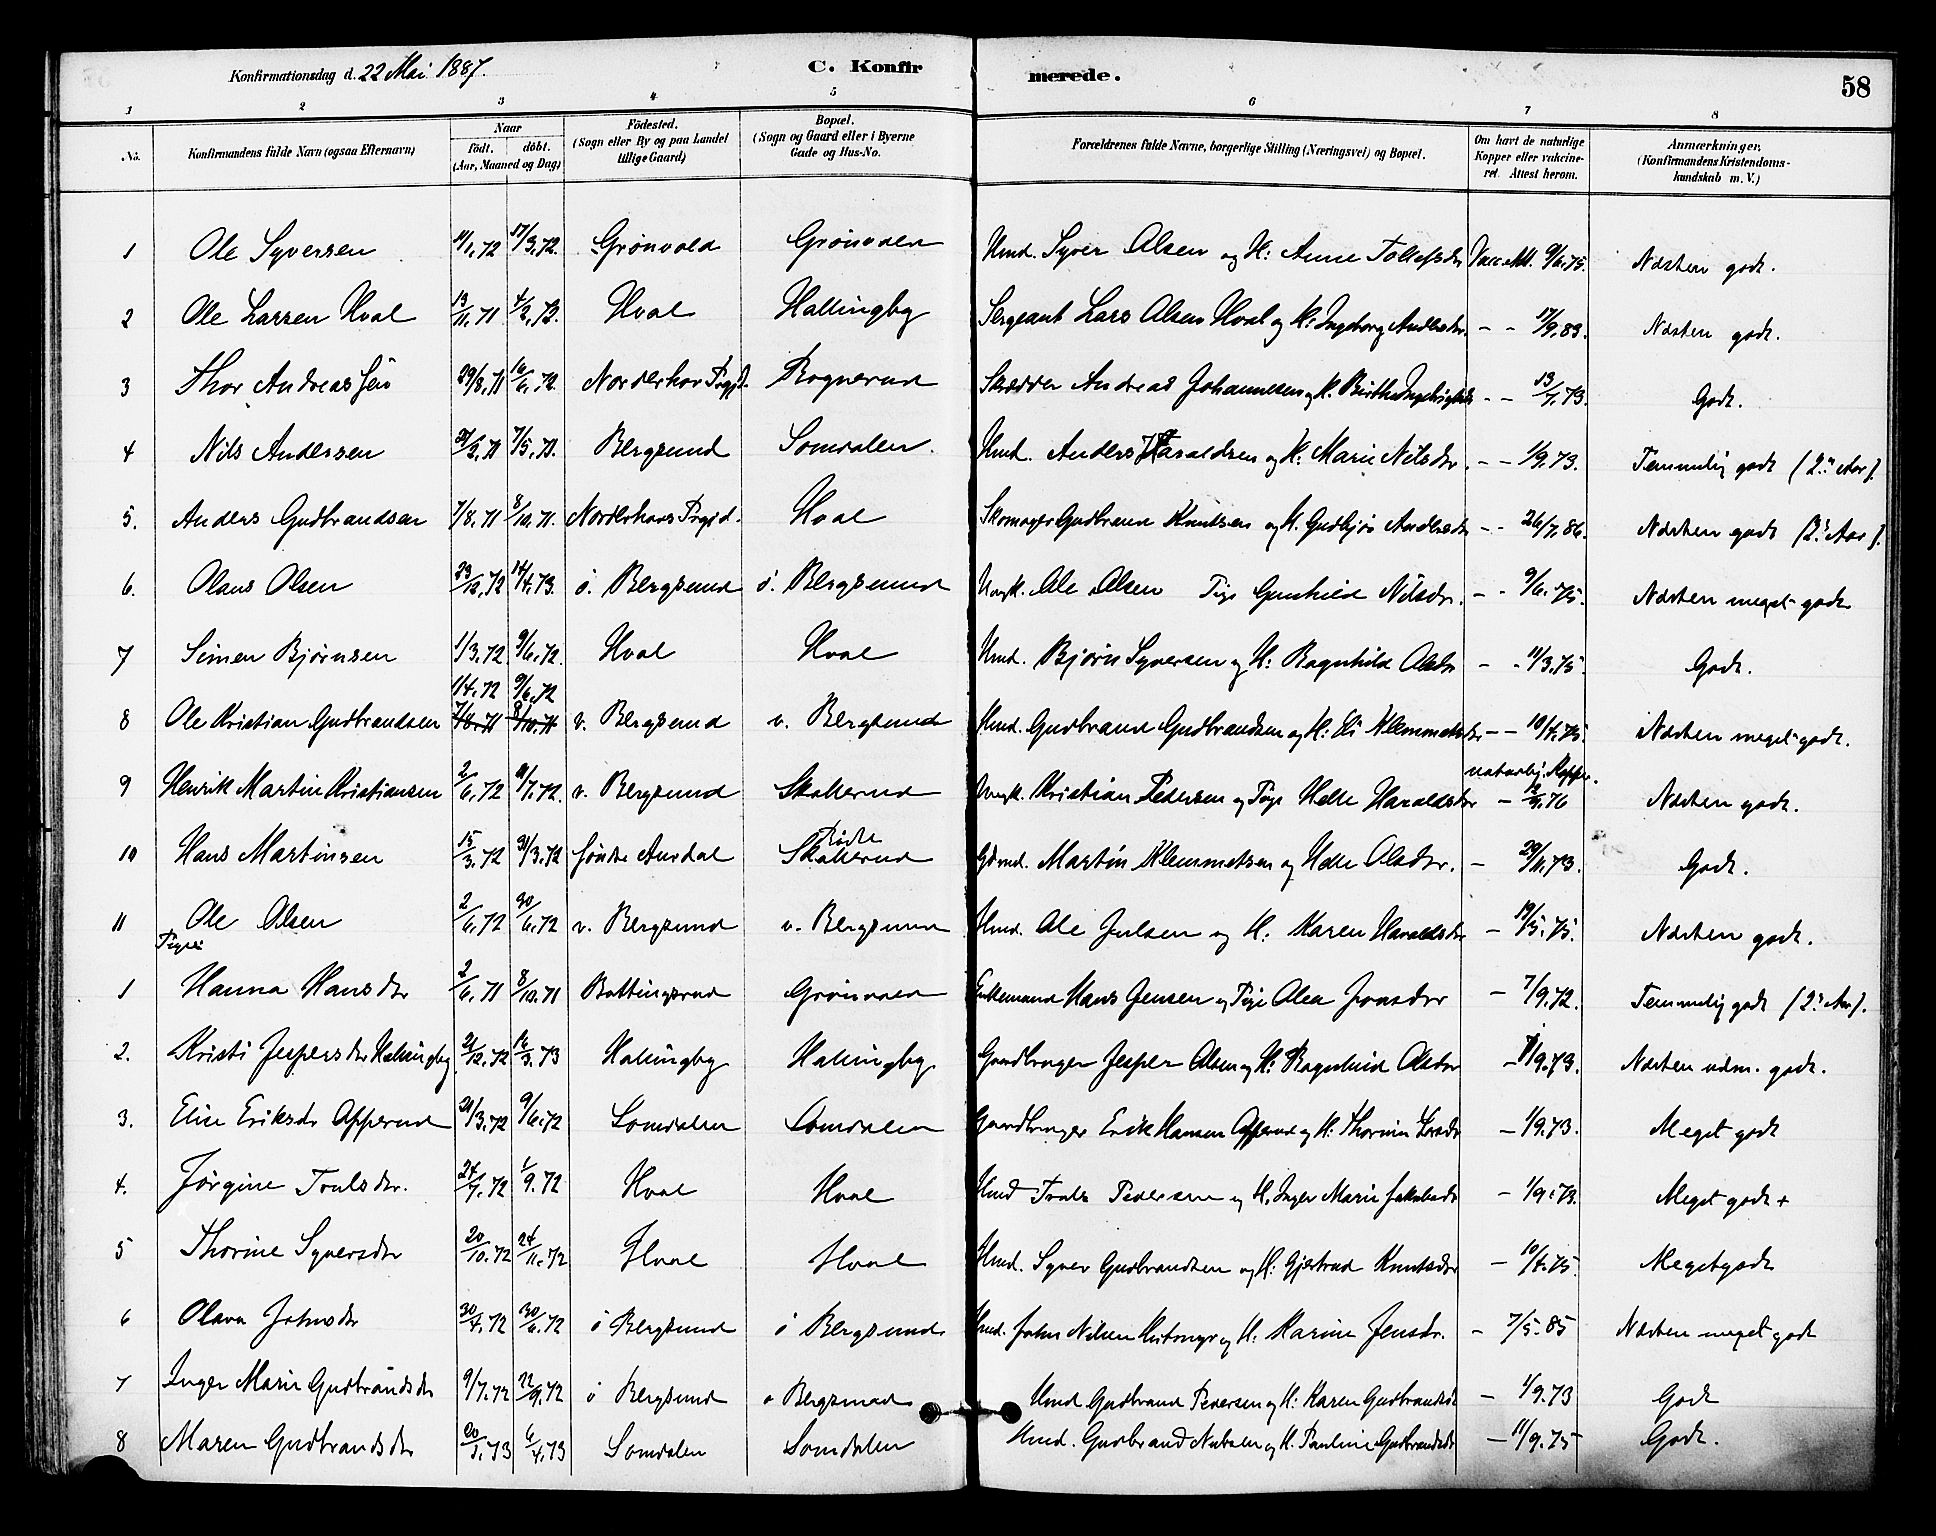 Konfirmationsdag d. 22 Mai 1887. C. Konfirmerede. 58
1 2 3 4 5 6 7 8
No. Konfirmandens fulde Navn (ogsaa Efternavn) Naar født. døbt. (Aar, Maaned og Dag) Fødested. (Sogn eller By og paa Landet tillige Gaard) Bopæl. (Sogn og Gaard eller i Byerne Gade og Hus-No. Forældrenes fulde Navne, borgerlige Stilling (Næringsvei) og Bopæl. Om havt de naturlige Kopper eller vakcineret. Attest herom. Anmærkninger. (Konfirmandens Kristendomskundskab m. V.)
1 Ole Syversen 11/1.72 17/3.72. Grønvold Grønvolen Hmd. Syver Olsen og H: Anne Tollefsdr Vacc Att. 9/6.75. Næsten godt.
2 Ole Larsen Hval 13/11.71 4/2.72. Hval Hallingby Sergeant Lars Olsen Hval og H: Ingeborg Andersdr. - - 17/9.83. Næsten godt.
3 Thor Andreassen 29/8.71 16/6.72. Norderhov Prgjd. Rognerud Skrædder Andreas Johannesen og H. Birthe Ingebrigtsdr - - 13/7.73. Godt.
4 Nils Andersen 27/2.71 7/5.71. Bergsund Somdalen. Hmd. Anders Haraldsen og H: Marie Nilsdr. - - 1/9.73. Temmelig godt (2det Aar).
5. Anders Gudbrandsen 7/8.71 8/10.71. Norderhovs Prgjd. Hval Skomager Gudbrand Knutsen og H. Gudbjør Andersdr - - 26/7.86. Næsten godt (2det Aar).
6. Olaus Olsen 23/12.72 14/4.73. ø. Bergsund ø. Bergsund Ungk. Ole Olsen Pige Gunhild Nilsdr. - - 9/6.75. Næsten meget godt
7 Simen Bjørnsen 1/3.72 9/6.72. Hval Hval Hmd. Bjørn Syversen og H: Ragnhild Olsdr - - 11/3.75. Godt.
1/4.72 9/6.72
8 Ole Kristian Gudbrandsen 7/8.71 8/10.71 v. Bergsund v. Bergsund Hmd. Gudbrand Gudbrandsen og H: Eli Klemmetsdr - - 10/4.75. Næsten meget godt.
naturlig Kopper.
9 Henrik Martin Kristiansen 2/6.72 21/7.72. v. Bergsund Skollerud Ungk. Kristian Pedersen og Pige Helle Haraldsdr - 12/9.76 Næsten godt.
10 Hans Martinsen 15/3.72 31/3.72 Søndre Aurdal Skollerud Gbmd. Martin Klemmetsen og Helle Olsdr. - 29/11.73. Godt.
11 Ole Olsen 2/6.72 30/6.72 v. Bergsund v. Bergsund Hmd. Ole Julsen og H: Karen Haraldsdr - 19/5.75. Næsten godt.
Piger
1 Hanna Hansdr 2/6.71 8/10.71 Bottingsrud Grønvolen Enkemand Hans Jensen og Pige Olea Jonsdr - 7/9.72. Temmelig godt (2det Aar).
2. Kristi Jespersdr Hallingby 21/12.72 16/3.73 Hallingby Hallingby Gaardbruger Jesper Olsen og H: Ragnhild Olsdr - 1/9.73. Næsten udm. godt.
3. Elise Eriksdr Opperud 21/3.72 9/6.72 Somdalen Somdalen Gaardbruger Erik Hansen Opperud og H. Thorine Larsdr - 1/9.73. Meget godt
4. Jørgine Trulsdr. 24/7.72 1/9.72 Hval Hval Hmd Truls Pedersen og H. Inger Marie Jakobsdr - 1/9.73. Meget godt
5 Thorine Syversdr 20/10.72 24/11.72 Hval Hval Hmd. Syver Gudbrandsen og H: Gjertrud Knutsdr - 10/4.75. Meget godt
6 Olava Johnsdr 30/4.72 30/6.72 ø Bergsund ø Bergsund. Hmd. John Nilsen og H: Karine Jensdr. - 7/5.85 Næsten meget godt
7 Inger Marie Gudbrandsdr 9/7.72 22/9.72 ø Bergsund ø Bergsund Hmd Gudbrand Pedersen og H: Karen Gudbrandsdr - 1/9.73 Godt
8 Maren Gudbrandsdr 20/1.73 6/4.73 Somdalen Somdalen Hmd. Gudbrand Nubsen og H. Pauline Gudbrandsdr - 11/9.75 Godt.